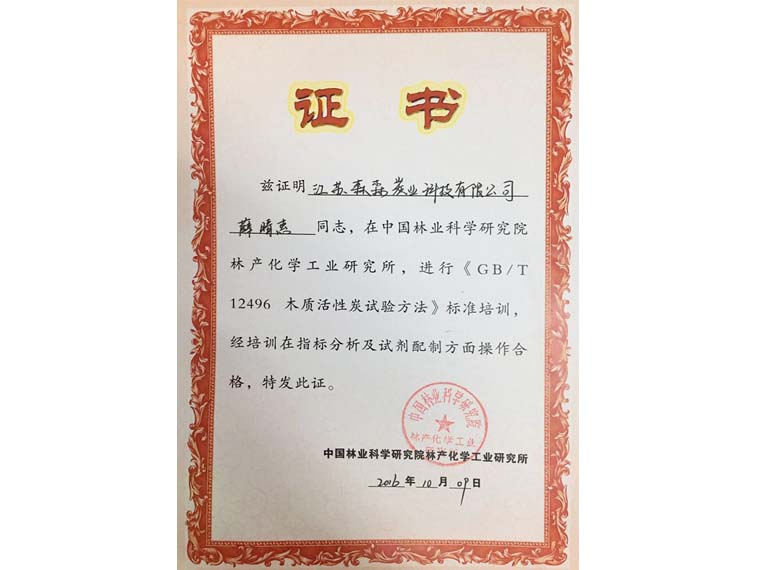 证 书
兹证明江苏森森炭业科技有限公司
薛晴杰 同志，在中国林业科学研究院
林产化学工业研究所，进行《GB/T
12496 木质活性炭试验方法》标准培训，
经培训在指标分析及试剂配制方面操作合
格，特发此证。
中国林业科学研究院
林产化学工业
中国林业科学研究院林产化学工业研究所
2016年10月09日